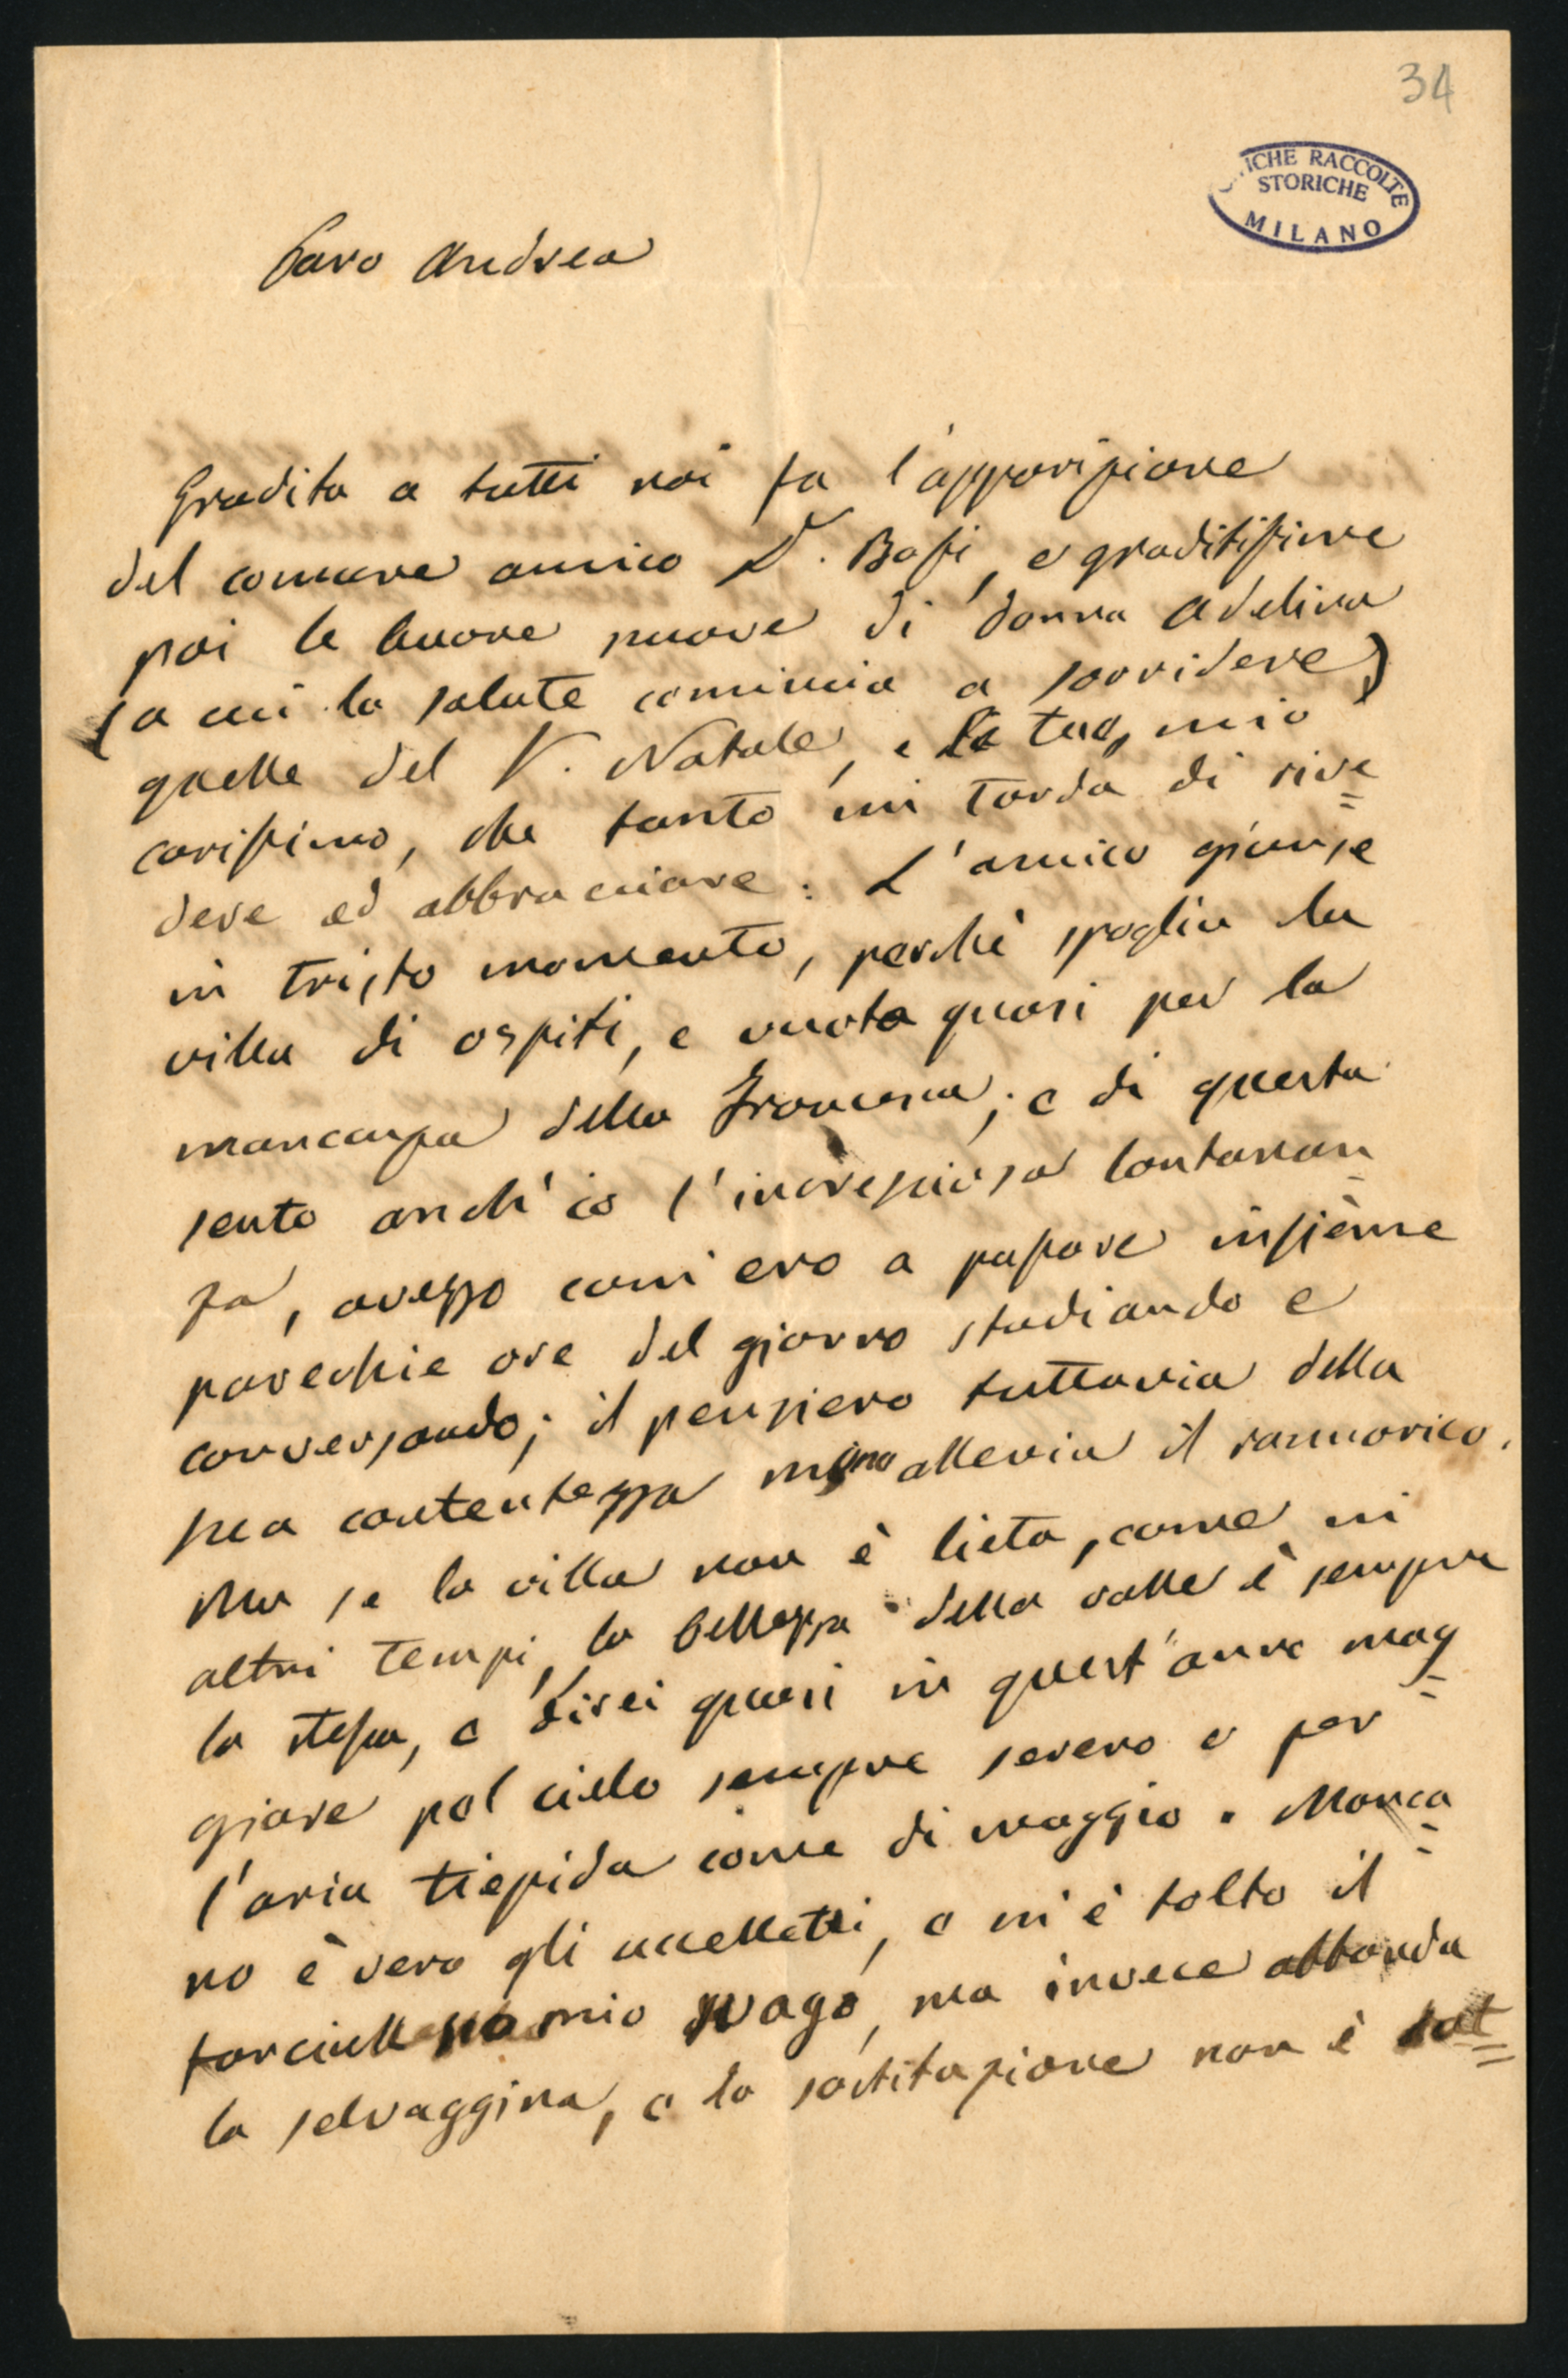 34
ICHE RACCOLTE
STORICHE
MILANO
Caro Andrea
Gradita a tutti noi fu l'apparizione
del comune amico D. Bassi, e graditissime
poi le buone nuove di donna Adelina
(a cui la salute comincia a sorridere)
quelle del V. Natale, e le tue, mio
carissimo, che tanto mi tarda di rive=
dere ed abbracciare. L'amico giunse
in tristo momento, perchè spoglia la
villa di ospiti, e vuota quasi per la
mancanza della Francesca; e di questa
sento anch'io l'incresciosa lontanan-
za, avezzo com'ero a passare insieme
parecchie ore del giorno studiando e
conversando; il pensiero tuttavia della
sua contentezza allevia il rammarico.
Ma se la villa non è lieta, come in
altri tempi, la bellezza della valle è sempre
la stessa, e direi quasi in quest'anno mag-
giore pel cielo sempre sereno e per
l'aria tiepida come di maggio. Manca-
no è vero gli uccelletti, e m'è tolto il
mio svago, ma invece abbonda
la selvaggina, e la sostituzione non è